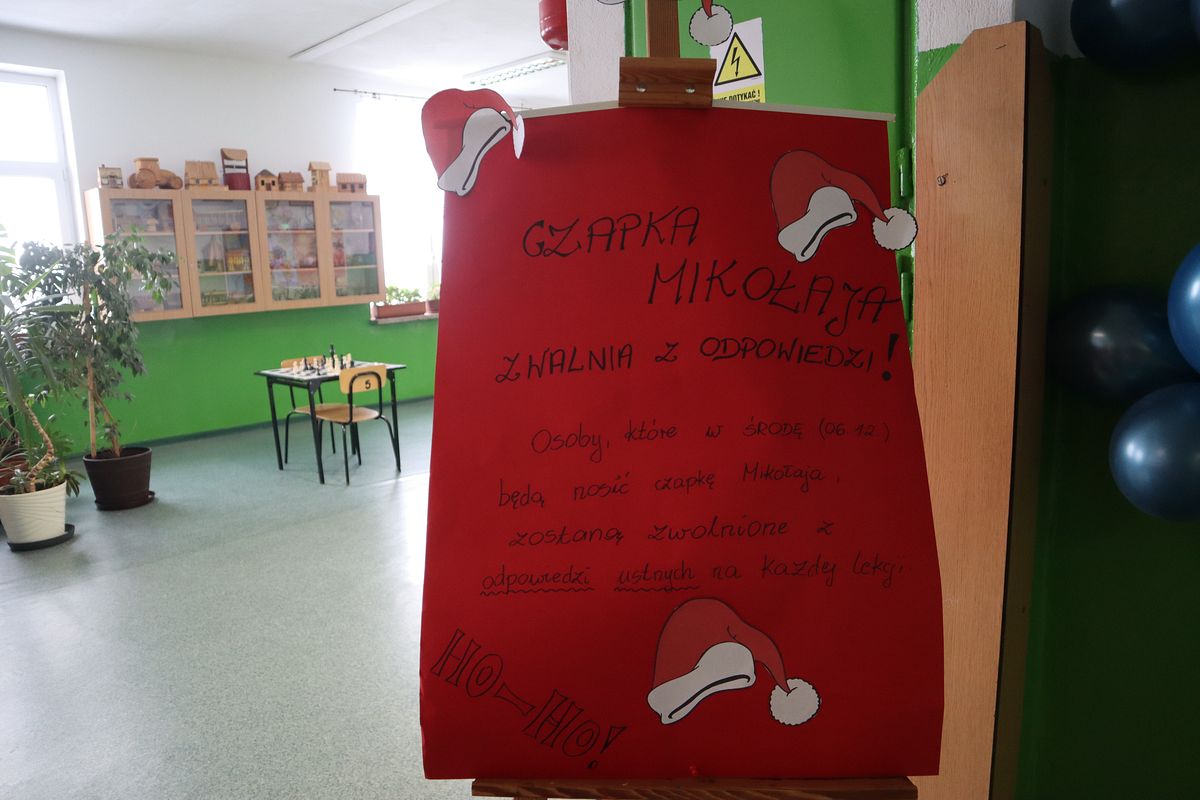 NIE DOTYKAĆ!
CZAPKA
MIKOŁAJA
ZWALNIA Z ODPOWIEDZI!
Osoby, które w ŚRODĘ (06.12.)
będą nosić czapkę Mikołaja,
zostaną zwolnione z
odpowiedzi ustnych na każdej lekcji.
HO-HO!
5